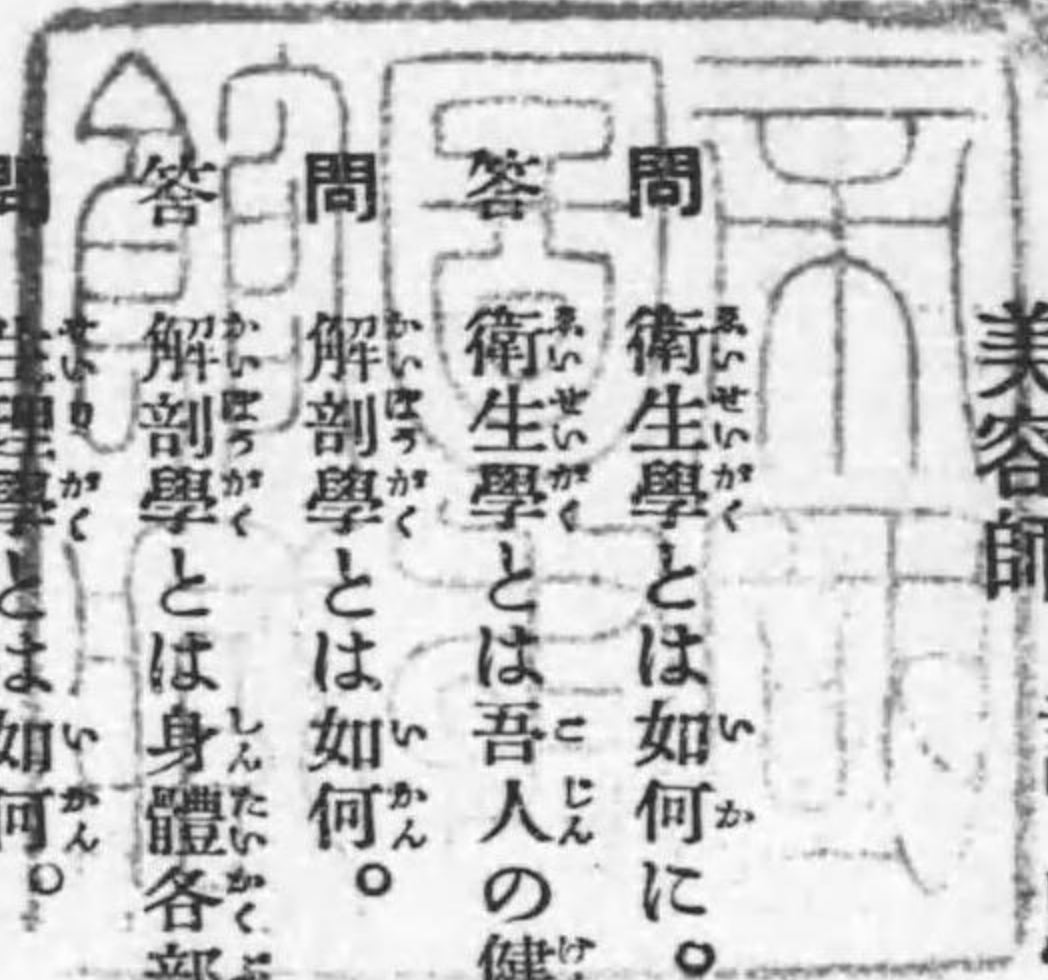 美容師
問 衛生學とは如何に。
答 衛生學とは吾人の健
問 解剖學とは如何。
答 解剖學とは身體各部
問 生理學とは如何。